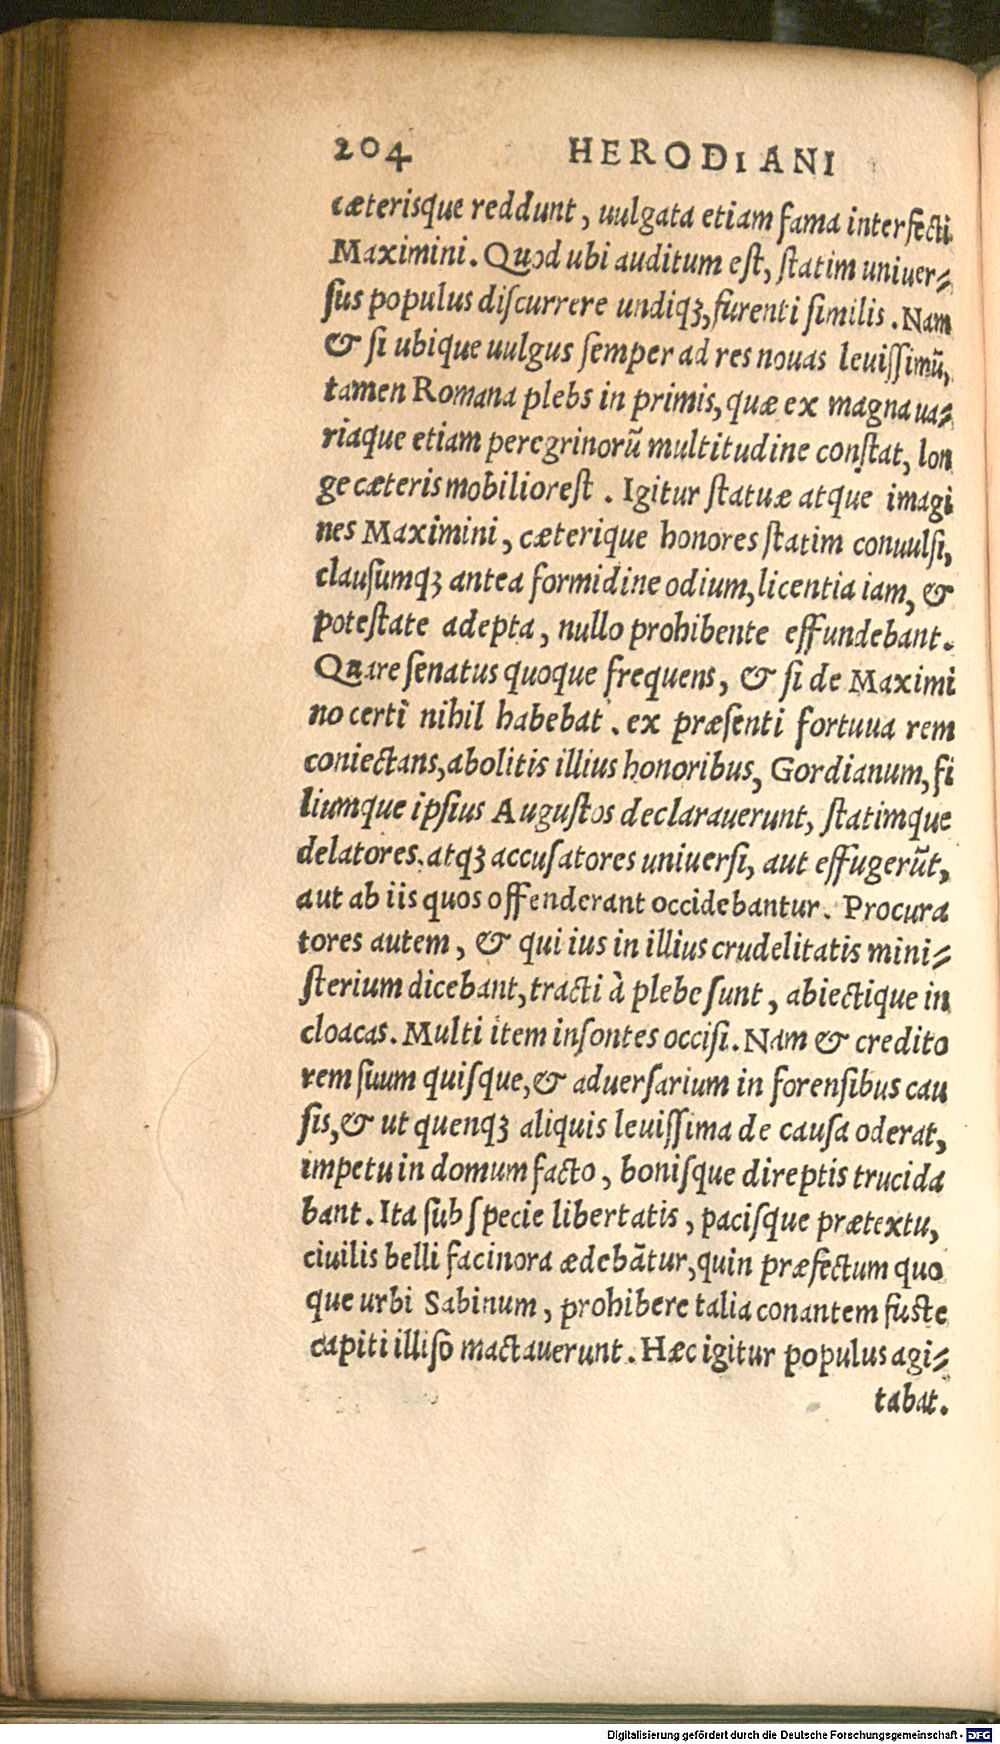 204 HERODIANI
cæterisque reddunt, uulgata etiam fama interfecti
Maximini. Quod ubi auditum est, statim uniuer⸗
sus populus discurrere undiqꝫ, furenti similis. Nam
& si ubique uulgus semper ad res nouas leuissimũ,
tamen Romana plebs in primis, quæ ex magna ua⸗
riaque etiam peregrinorũ multitudine constat, lon
ge cæteris mobilior est. Igitur statuæ atque imagi
nes Maximini, cæterique honores statim conuulsi,
clausumqꝫ antea formidine odium, licentia iam, &
potestate adepta, nullo prohibente effundebant.
Quare senatus quoque frequens, & si de Maximi
no certi nihil habebat. ex præsenti fortuua rem
coniectans, abolitis illius honoribus, Gordianum, fi
liumque ipsius Augustos declarauerunt, statimque
delatores. atqꝫ accusatores uniuersi, aut effugerũt,
aut ab iis quos offenderant occidebantur. Procura
tores autem, & qui ius in illius crudelitatis mini⸗
sterium dicebant, tracti à plebe sunt, abiectique in
cloacas. Multi item insontes occisi. Nam & credito
rem suum quisque, & aduersarium in forensibus cau
sis, & ut quenqꝫ aliquis leuissima de causa oderat,
impetu in domum facto, bonisque direptis trucida
bant. Ita sub specie libertatis, pacisque prætextu,
ciuilis belli facinora ædebãtur, quin præfectum quo
que urbi Sabinum, prohibere talia conantem fuste
capiti illiso mactauerunt. Hæc igitur populus agi⸗
tabat.
Digitalisierung gefördert durch die Deutsche Forschungsgemeinschaft - DFG